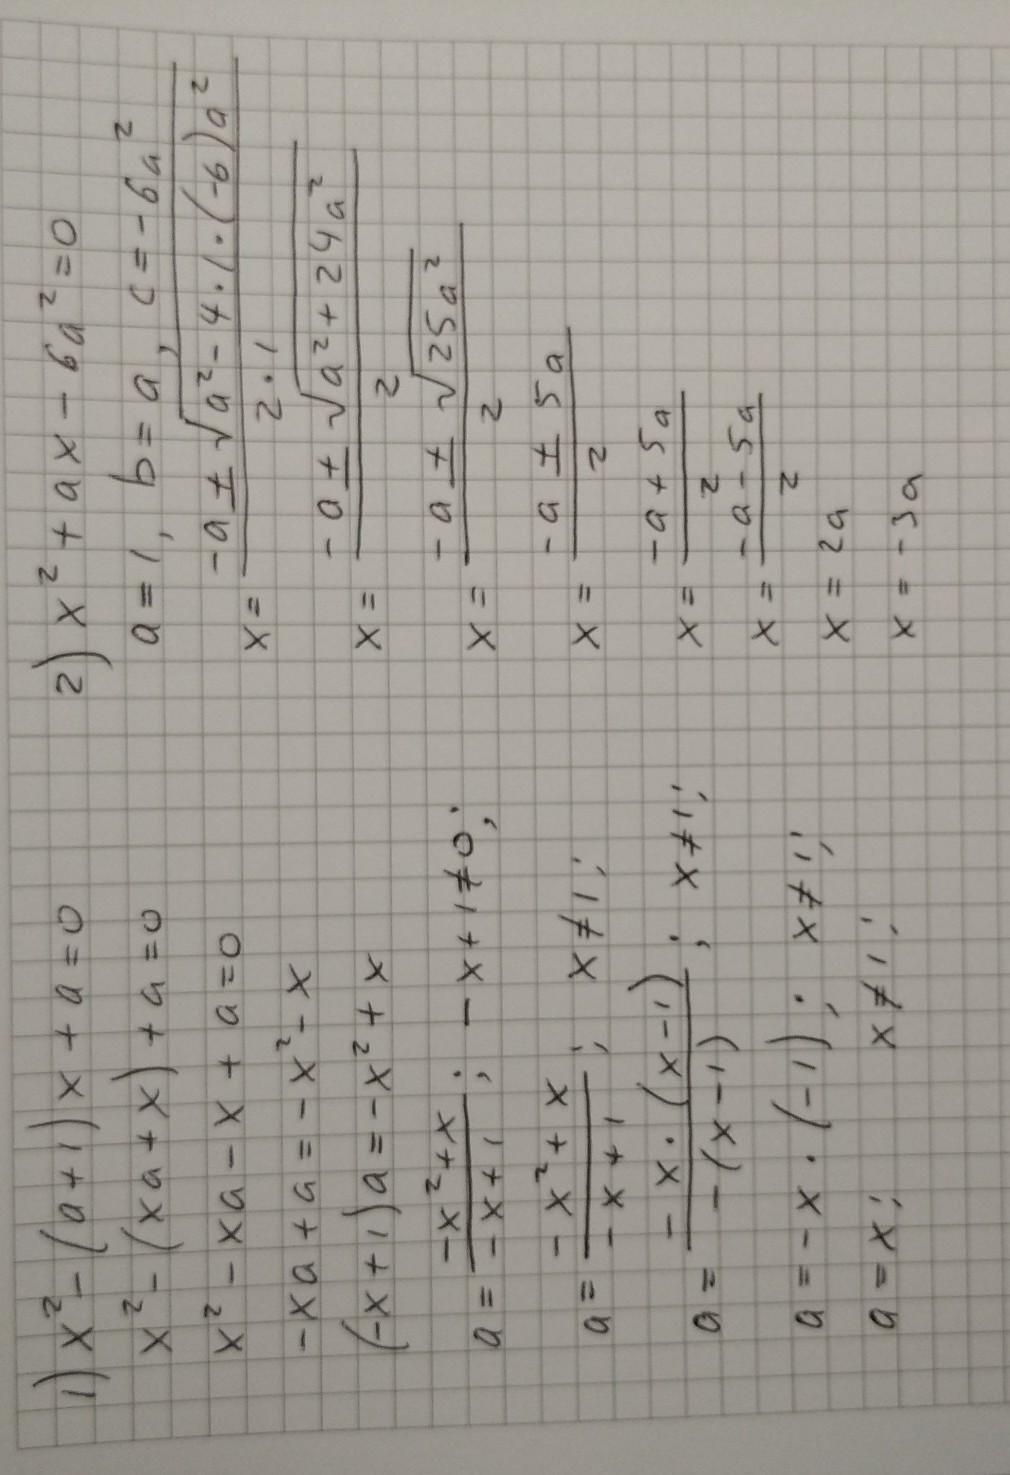 1) x² - (a+1)x + a = 0
x² - (xa + x) + a = 0
x² - xa - x + a = 0
-xa + a = -x² - x
(-x+1)a = -x² + x
a = (-x² + x)/(-x+1); -x+1≠0;
a = (-x² + x)/(-x+1); x≠1;
a = (-x·(x-1))/(-(x-1)); x≠1;
a = -x·(-1); x≠1;
a = x; x≠1;
2) x² + ax - 6a² = 0
a=1, b=a, c=-6a²
x = (-a ± √(a² - 4·1·(-6)a²))/(2·1)
x = (-a ± √(a² + 24a²))/2
x = (-a ± √(25a²))/2
x = (-a ± 5a)/2
x = (-a + 5a)/2
x = (-a - 5a)/2
x = 2a
x = -3a